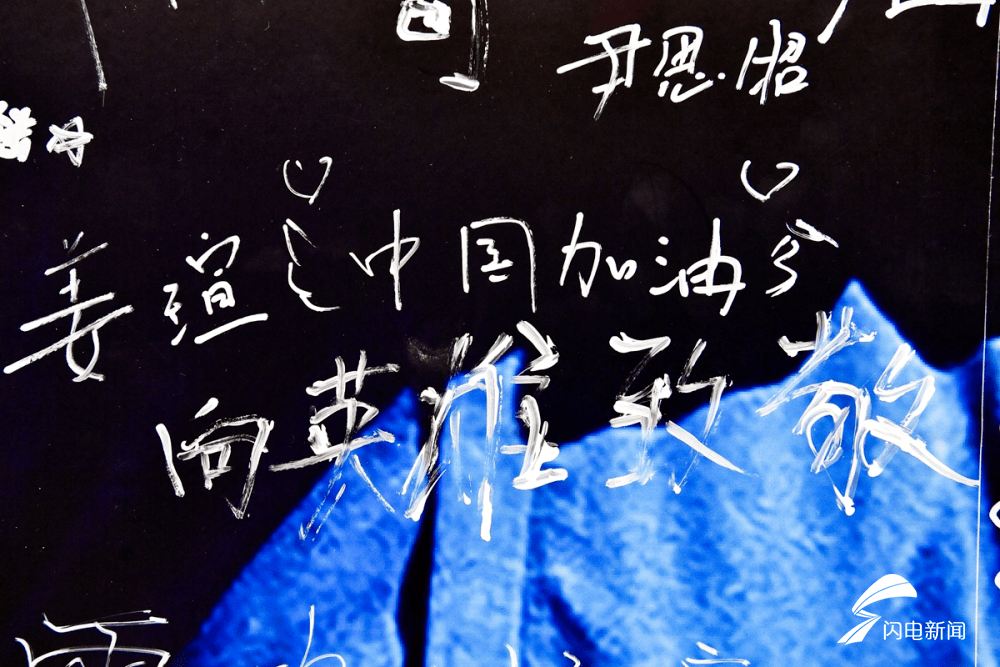 尹思昭
姜萱 中国加油
向英雄致敬
闪电新闻